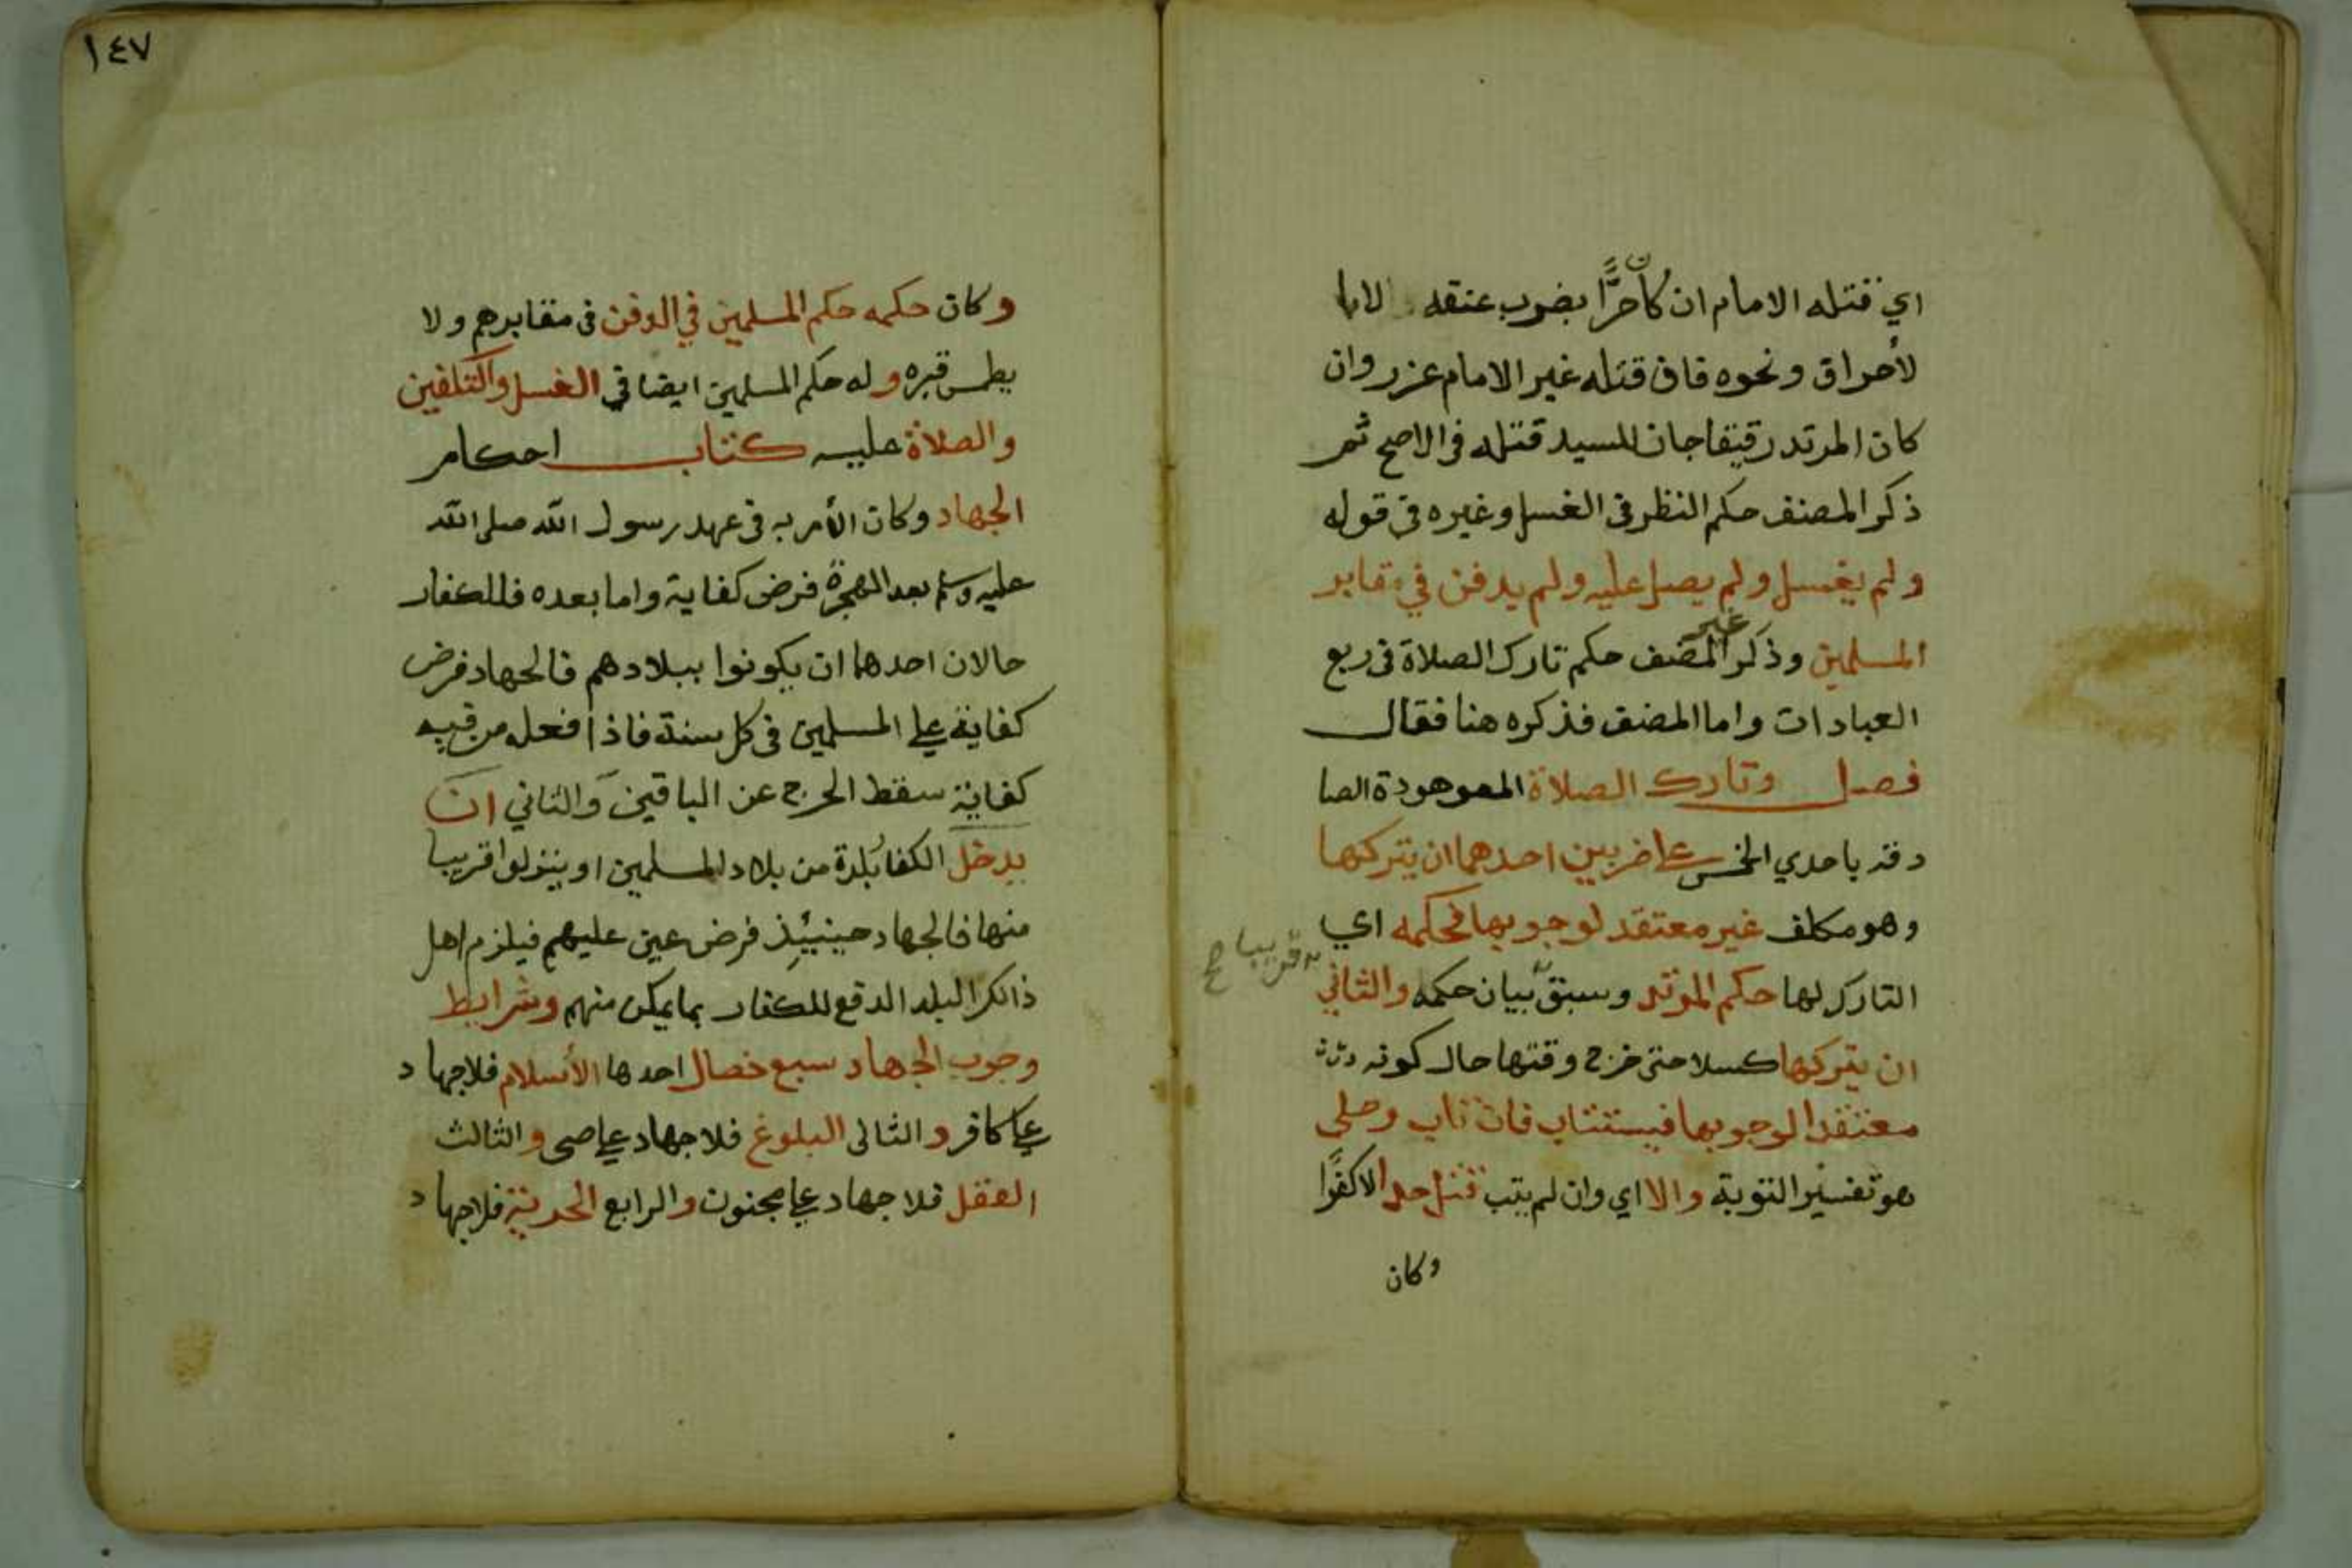 اي قتله الامام ان كان حرًّا بضرب عنقه لابا
لأحراق ونحوه فان قتله غير الامام عزر وان
كان المرتد رقيقا جان للسيد قتله في الاصح ثم
ذكر المصنف حكم النظر في الغسل وغيره في قوله
ولم يغسل ولم يصل عليه ولم يدفن في مقابر
المسلمين وذكر غير المصنف حكم تارك الصلاة في ربع
العبادات واما المصنف فذكره هنا فقال
فصل وتارك الصلاة المعوهودة الصا
دقة باحدي الخمس علي ضربين احدهما ان يتركها
وهو مكلف غير معتقد لوجوبها فحكمه اي
التارك لها حكم المرتد وسبق بيان حكمه والثاني
قريبا صح
ان يتركها كسلا حتى خرج وقتها حال كونه
معتقدا لوجوبها فيستتاب فان تاب وصلى
هو تفسير التوبة والا اي وان لم يتب قتل حدا لا كفرًا
وكان
١٤٧
وكان حكمه حكم المسلمين في الدفن في مقابرهم ولا
يطمس قبره وله حكم المسلمين ايضا في الغسل والتكفين
والصلاة عليه كتاب احكام
الجهاد وكان الأمر به في عهد رسول الله صلى الله
عليه وسلم بعد الهجرة فرض كفاية واما بعده فللكفار
حالان احدهما ان يكونوا ببلادهم فالجهاد فرض
كفاية علي المسلمين في كل سنة فاذا فعله من فيه
كفاية سقط الحرج عن الباقين والثاني ان
يدخل الكفار بلدة من بلاد المسلمين او ينزلوا قريبا
منها فالجهاد حينيئذ فرض عين عليهم فيلزم اهل
ذالك البلد الدفع للكفار بما يمكن منهم وشرايط
وجوب الجهاد سبع خصال احدها الأسلام فلا جهاد
علي كافر والثانى البلوغ فلا جهاد علي صبى والثالث
العقل فلا جهاد علي مجنون والرابع الحرية فلا جهاد